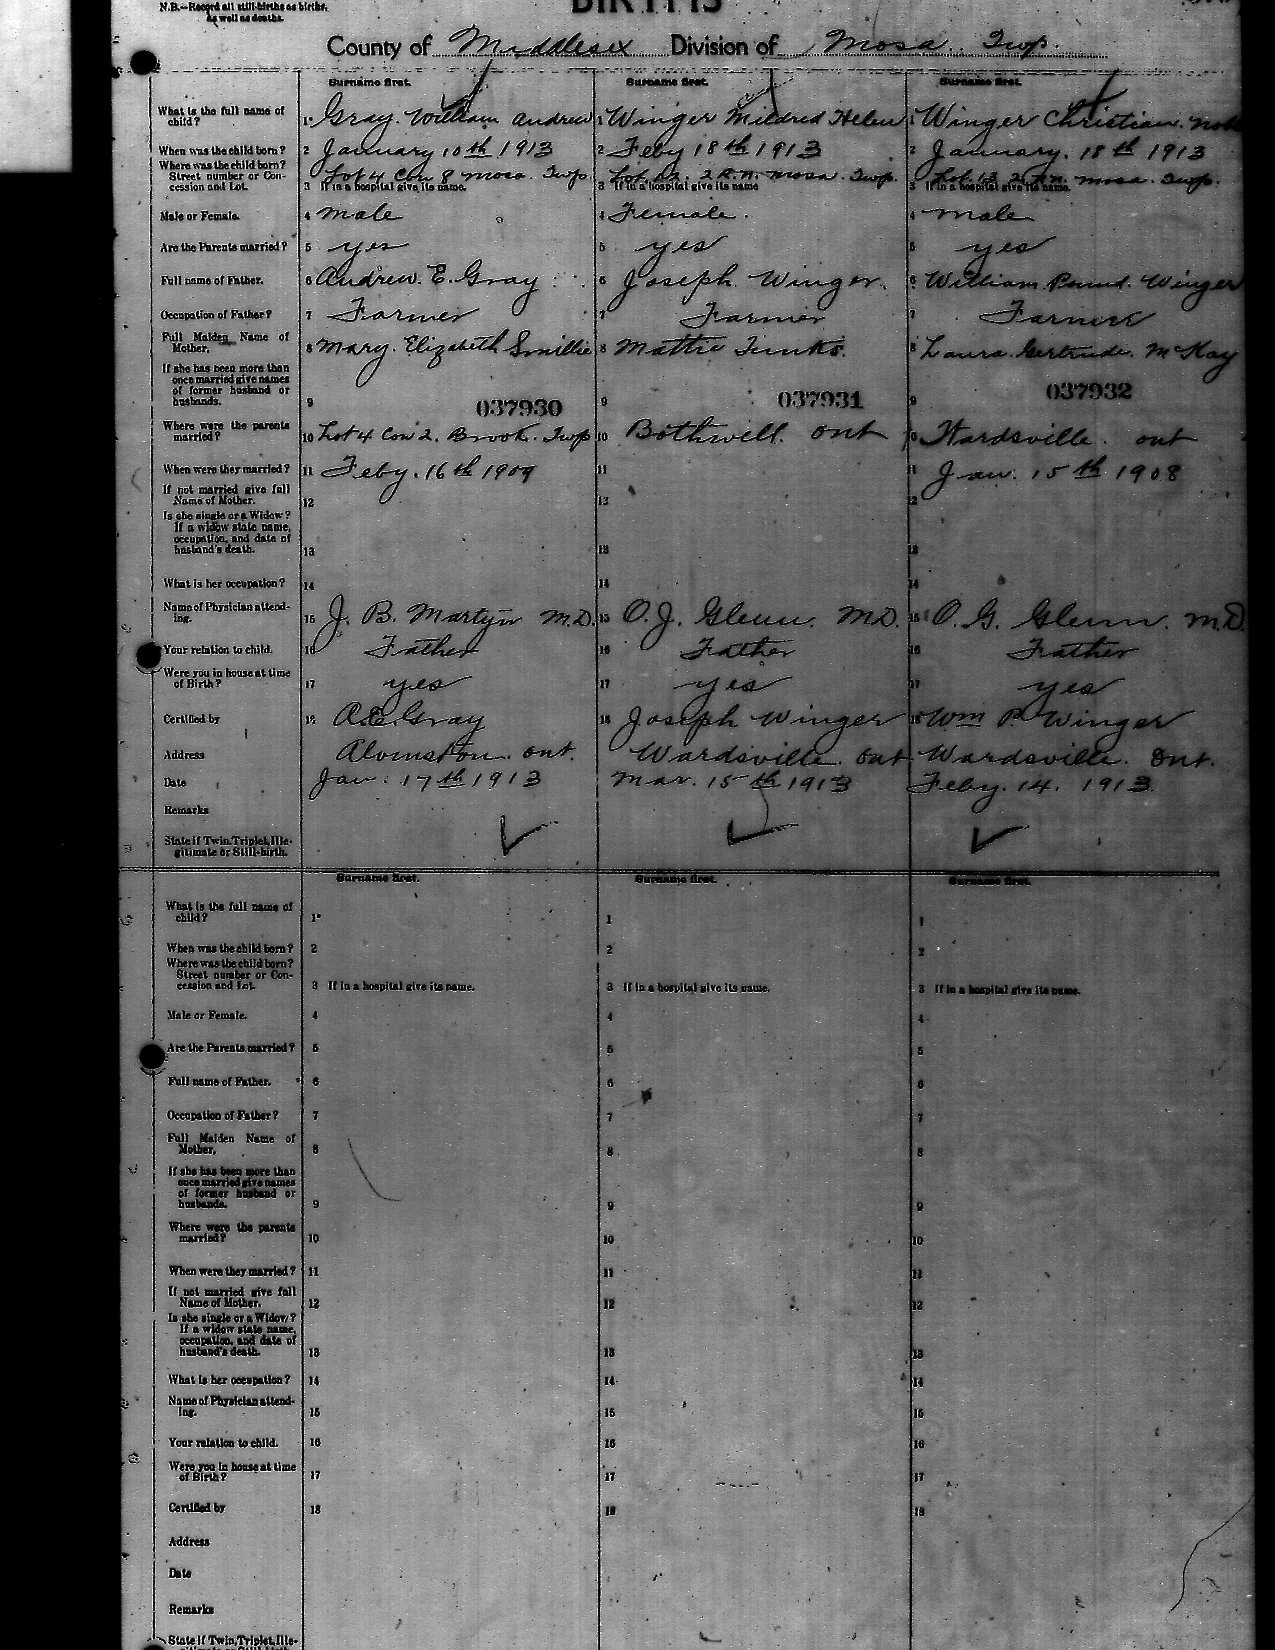 N.B.—Record all still-births as births, as well as deaths.
BIRTHS
County of Middlesex Division of Mosa Twp.
Surname first. Surname first. Surname first.
What is the full name of child? 1 Gray. William Andrew 1 Winger Mildred Helen 1 Winger Christian.
When was the child born? 2 January 10th 1913 2 Feby 18th 1913 2 January. 18th 1913
Where was the child born? Street number or Concession and Lot. 3 Lot 4 Con 8 Mosa. Twp If in a hospital give its name. 3 Lot 12. 2 R.N. Mosa. Twp. If in a hospital give its name 3 Lot. 13 2 R.N. Mosa. Twp. If in a hospital give its name.
Male or Female. 4 Male 4 Female. 4 Male
Are the Parents married? 5 yes 5 yes 5 yes
Full name of Father. 6 Andrew. E. Gray 6 Joseph. Winger. 6 William. Winger
Occupation of Father? 7 Farmer 7 Farmer 7 Farmer
Full Maiden Name of Mother. 8 Mary. Elizabeth Smillie 8 Mattie Tunks. 8 Laura. Gertrude. McKay
If she has been more than once married give names of former husband or husbands. 9 037930 9 037931 9 037932
Where were the parents married? 10 Lot 4 Con 2. Brook. Twp 10 Bothwell. Ont 10 Wardsville. Ont
When were they married? 11 Feby. 16th 1909 11 11 Jan. 15th 1908
If not married give full Name of Mother. 12 12 12
Is she single or a Widow? If a widow state name, occupation, and date of husband's death. 13 13 13
What is her occupation? 14 14 14
Name of Physician attending. 15 J. B. Martyn M.D. 15 O. J. Glenn. M.D. 15 O. G. Glenn. M.D.
Your relation to child. 16 Father 16 Father 16 Father
Were you in house at time of Birth? 17 yes 17 yes 17 yes
Certified by 18 A.E. Gray 18 Joseph Winger 18 Wm P. Winger
Address Alvinston. Ont. Wardsville. Ont Wardsville. Ont.
Date Jan. 17th 1913 Mar. 15th 1913 Feby. 14. 1913.
Remarks
State if Twin, Triplet, Illegitimate or Still-birth.
Surname first. Surname first. Surname first.
What is the full name of child? 1 1 1
When was the child born? 2 2 2
Where was the child born? Street number or Concession and Lot. 3 If in a hospital give its name. 3 If in a hospital give its name. 3 If in a hospital give its name.
Male or Female. 4 4 4
Are the Parents married? 5 5 5
Full name of Father. 6 6 6
Occupation of Father? 7 7 7
Full Maiden Name of Mother. 8 8 8
If she has been more than once married give names of former husband or husbands. 9 9 9
Where were the parents married? 10 10 10
When were they married? 11 11 11
If not married give full Name of Mother. 12 12 12
Is she single or a Widow? If a widow state name, occupation, and date of husband's death. 13 13 13
What is her occupation? 14 14 14
Name of Physician attending. 15 15 15
Your relation to child. 16 16 16
Were you in house at time of Birth? 17 17 17
Certified by 18 18 18
Address
Date
Remarks
State if Twin, Triplet, Ille-